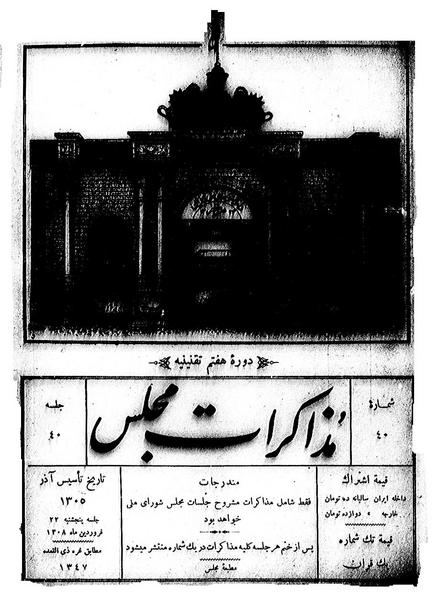 دورهٔ هفتم تقنینیه
شمارهٔ
۴۰
مذاکرات مجلس
جلسه
۴۰
قیمة اشتراك
داخله ایران سالیانه ده تومان
خارجه » دوازده تومان
قیمة تك شماره
یك قران
مندرجات
فقط شامل مذاکرات مشروح جلسات مجلس شورای ملی
خواهد بود
پس از ختم هر جلسه کلیه مذاکرات در یك شماره منتشر میشود
مطبعهٔ مجلس
تاریخ تأسیس آذر
۱۳۰۵
جلسه پنجشنبه ۲۲
فروردین ماه ۱۳۰۸
مطابق غره ذی القعده
۱۳۴۷